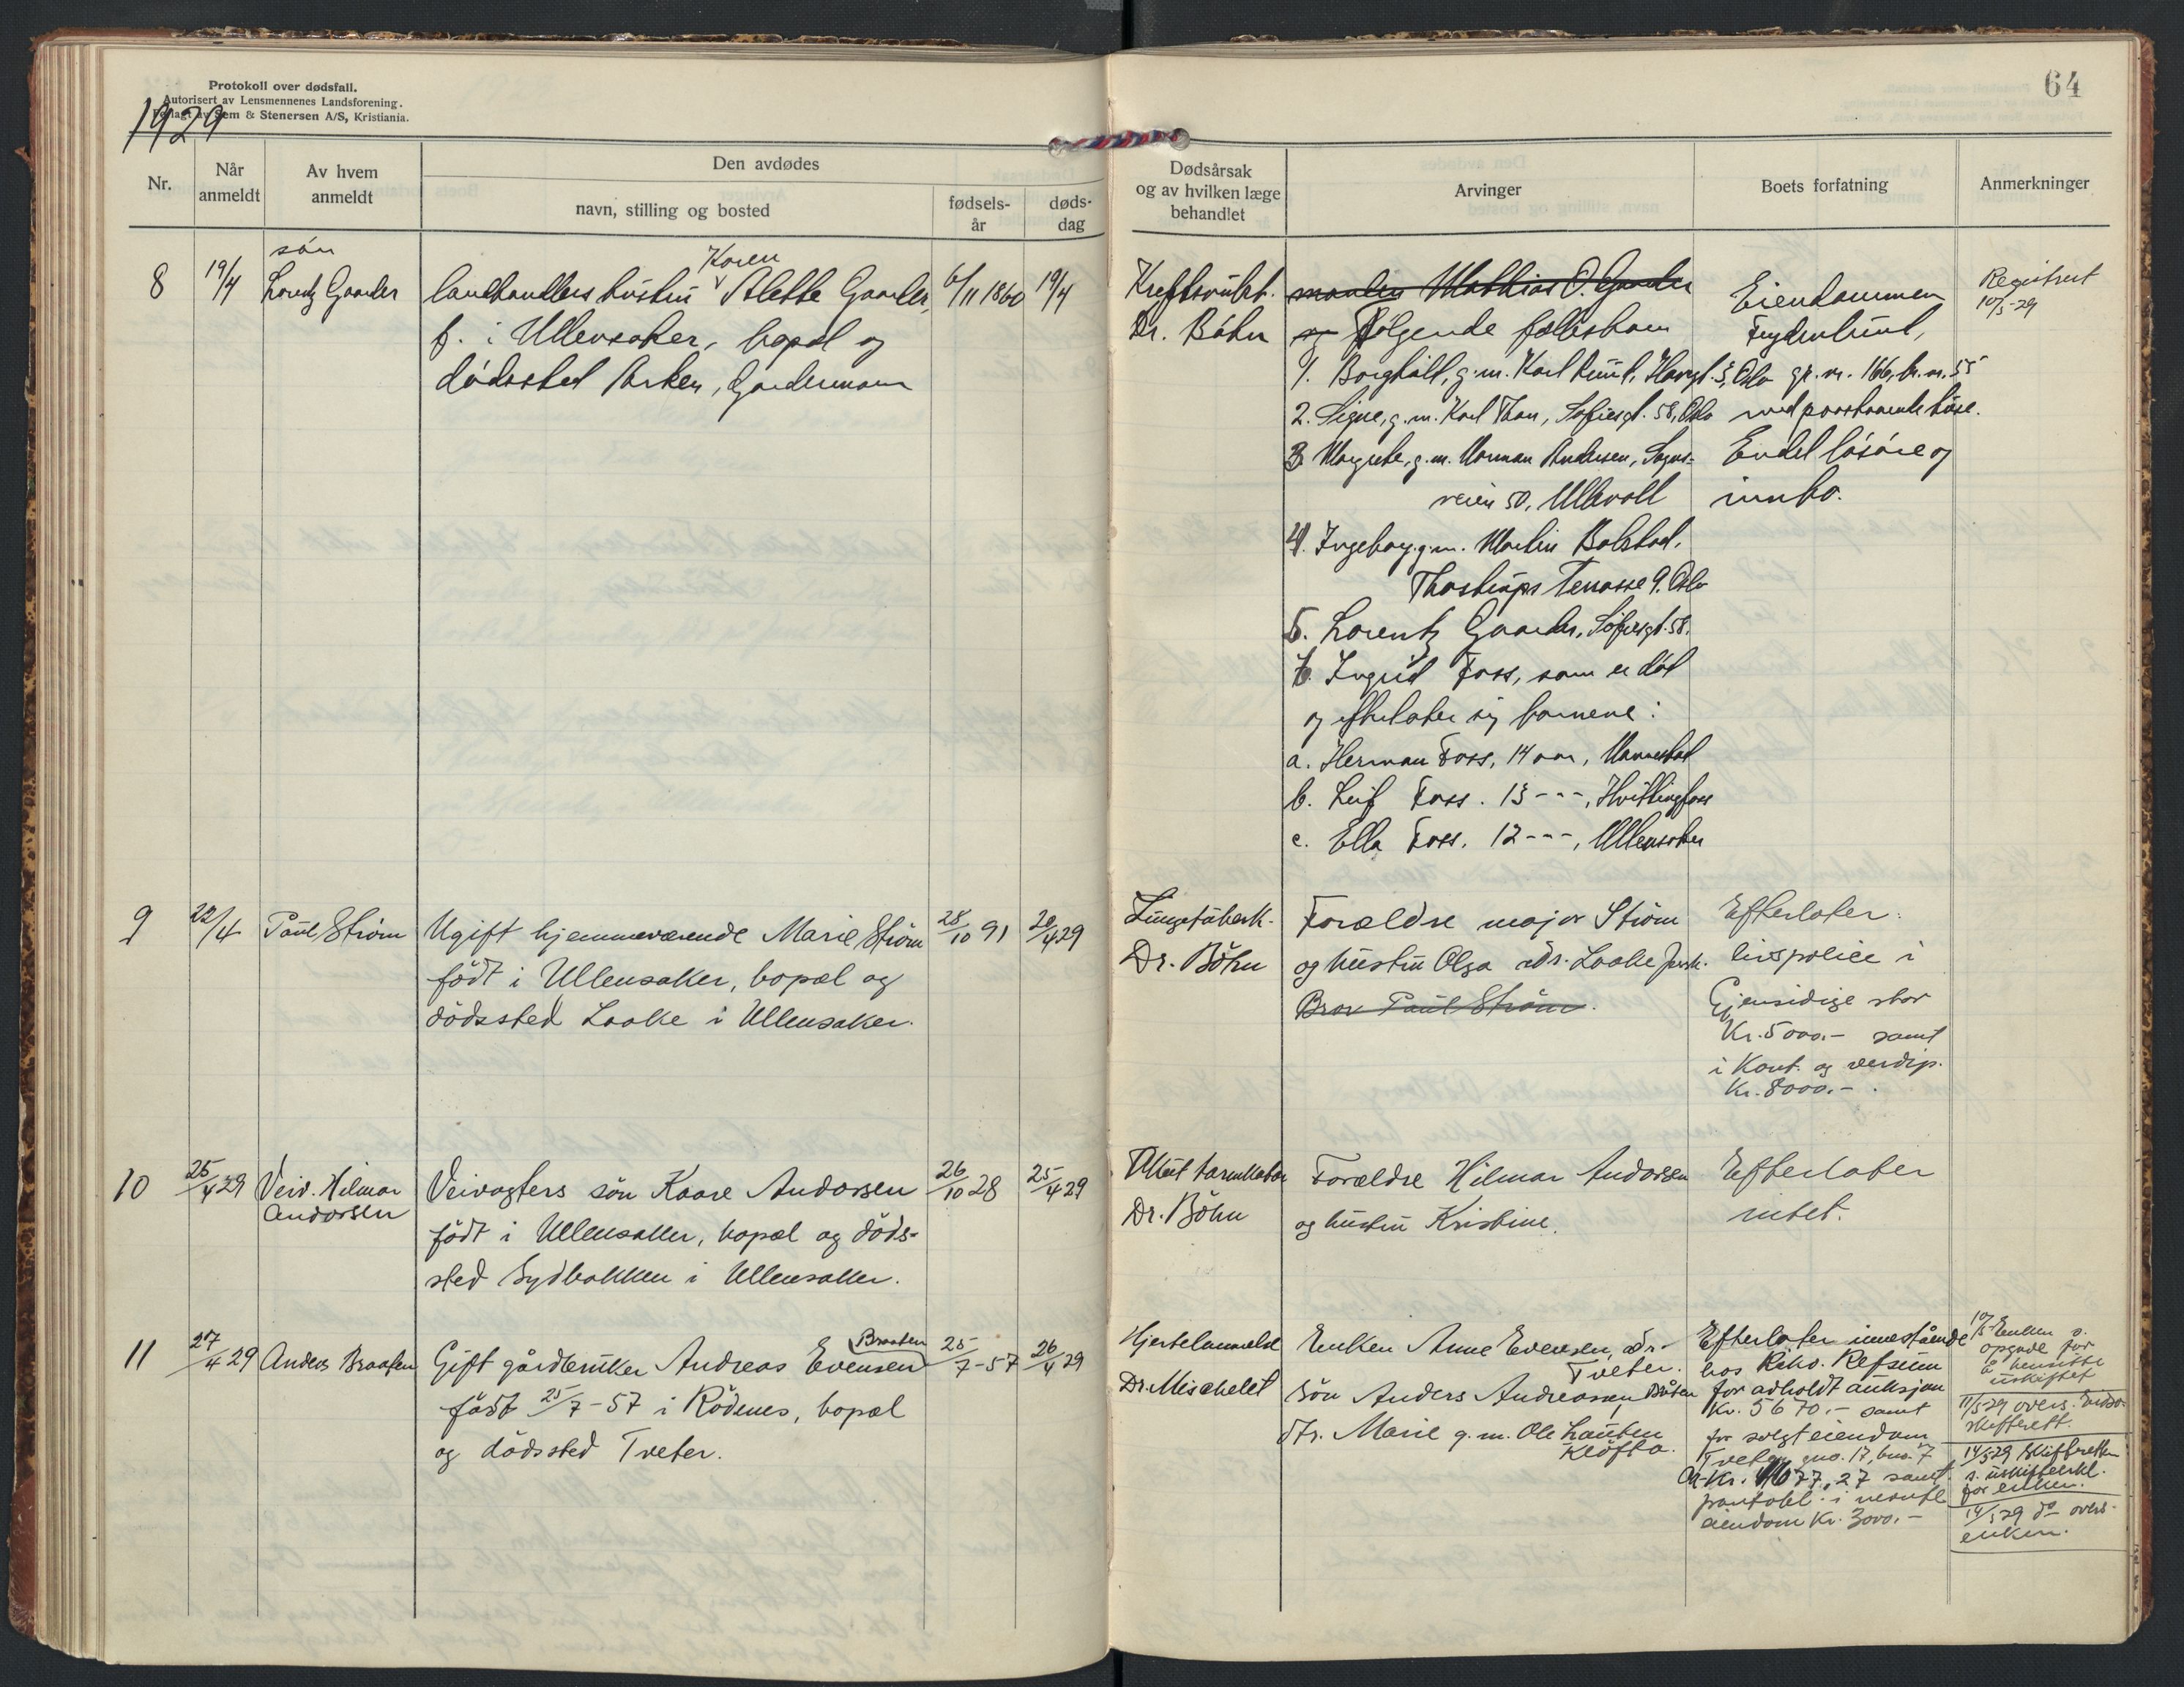 Protokoll over dødsfall.
Autorisert av Lensmennenes Landsforening.
Forlagt av Sem & Stenersen A/S, Kristiania.
1929
64
Nr.
Når anmeldt
Av hvem anmeldt
Den avdødes
navn, stilling og bosted
fødsels-år
døds-dag
Dødsårsak og av hvilken læge behandlet
Arvinger
Boets forfatning
Anmerkninger
8
19/4
søn
Lorentz Gaarder
Karen
landhandlers hustru Alette Gaarder,
f. i Ullensaker, bopæl og
dødssted Arken, Gardermoen
6/11 1860
19/4
Kreftsvulst.
Dr. Bøhn
manden Mathias O. Gaarder
og Følgende fællesbarn
1. Borghild, g.m. Karl Lund, 5, Oslo
2. Signe, g.m. Karl Than, Sofiesgt. 58, Oslo
3. Margrete, g.m. Norman Andersen, Sogns-
veien 50, Ullevoll
4. Ingeborg g.m. Martin Bolstad,
Thostrups Terrasse 9. Oslo
5. Lorentz Gaarder, Sofiesgt. 58.
6. Ingrid Foss, som er død
og efterlater sig barnene:
a. Herman Foss, 14 aar,
b. Leif Foss. 13 - - -, Hvittingfoss
c. Ella Foss. 12 - - -, Ullensaker
Eiendommen
Frydenlund,
gr. nr. 166, br. nr. 55
med paastaaende huse.
Endel løsøre og
innbo.
Registrert
10/5-29
9
22/4
Paul Strøm
Ugift hjemmeværende Marie Strøm
født i Ullensaker, bopæl og
dødssted Laake i Ullensaker.
28/10 91
20/4 29
Lungetuberk.
Dr. Bøhn
Forældre major Strøm
og hustru Olga adr. Laake Jessh.
Bror Paul Strøm.
Efterlater:
livspolice i
Gjensidige stor
Kr. 5000.- samt
i Kont. og verdip.
Kr. 8000.-.
10
25/4 29
Veiv. Hilmar
Andorsen
Veivogters søn Kaare Andorsen
født i Ullensaker, bopæl og døds-
sted Sydbakken i Ullensaker.
26/10 28
25/4 29
Akut tarmkatar
Dr. Bøhn
Forældre Hilmar Andorsen
og hustru Kristine.
Efterlater
intet.
11
27/4 29
Anders Braaten
Braaten
Gift gårdbruker Andreas Evensen
født 25/7-57 i Rødenes, bopæl
og dødssted Tveter.
25/7-57
26/4 29
Hjertelammelse
Dr. Mischelet
Enken Anne Evensen, adr.
Tveter.
Søn Anders Andreassen Bråten
dtr. Marie g.m. Ole Lauten
Kløfta.
Efterlater innestående
hos Rikv. Refsum
for avholdt auksjon
Kr. 5670.- samt
for solgt eiendom
Tveter gno. 17, bno. 7
Kr. 11677,27 samt
pantobl. i nevnte
eiendom Kr. 3000.-
10/5 Enken s.
opgave for
å hensitte
i uskiftet
11/5-29 overs. Eidsv.
skifterett.
14/5 29 Skifteretten
s. uskifteerkl.
for enken.
14/5 29 do overs.
enken.